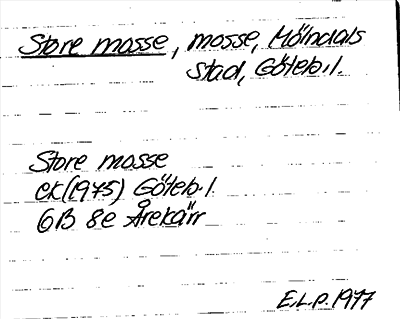 Store mosse, mosse, Mölndals
stad, Göteb.l.
Store mosse
EK(1975) Göteb.l.
6B 8e Årekärr
E.L.P. 1977